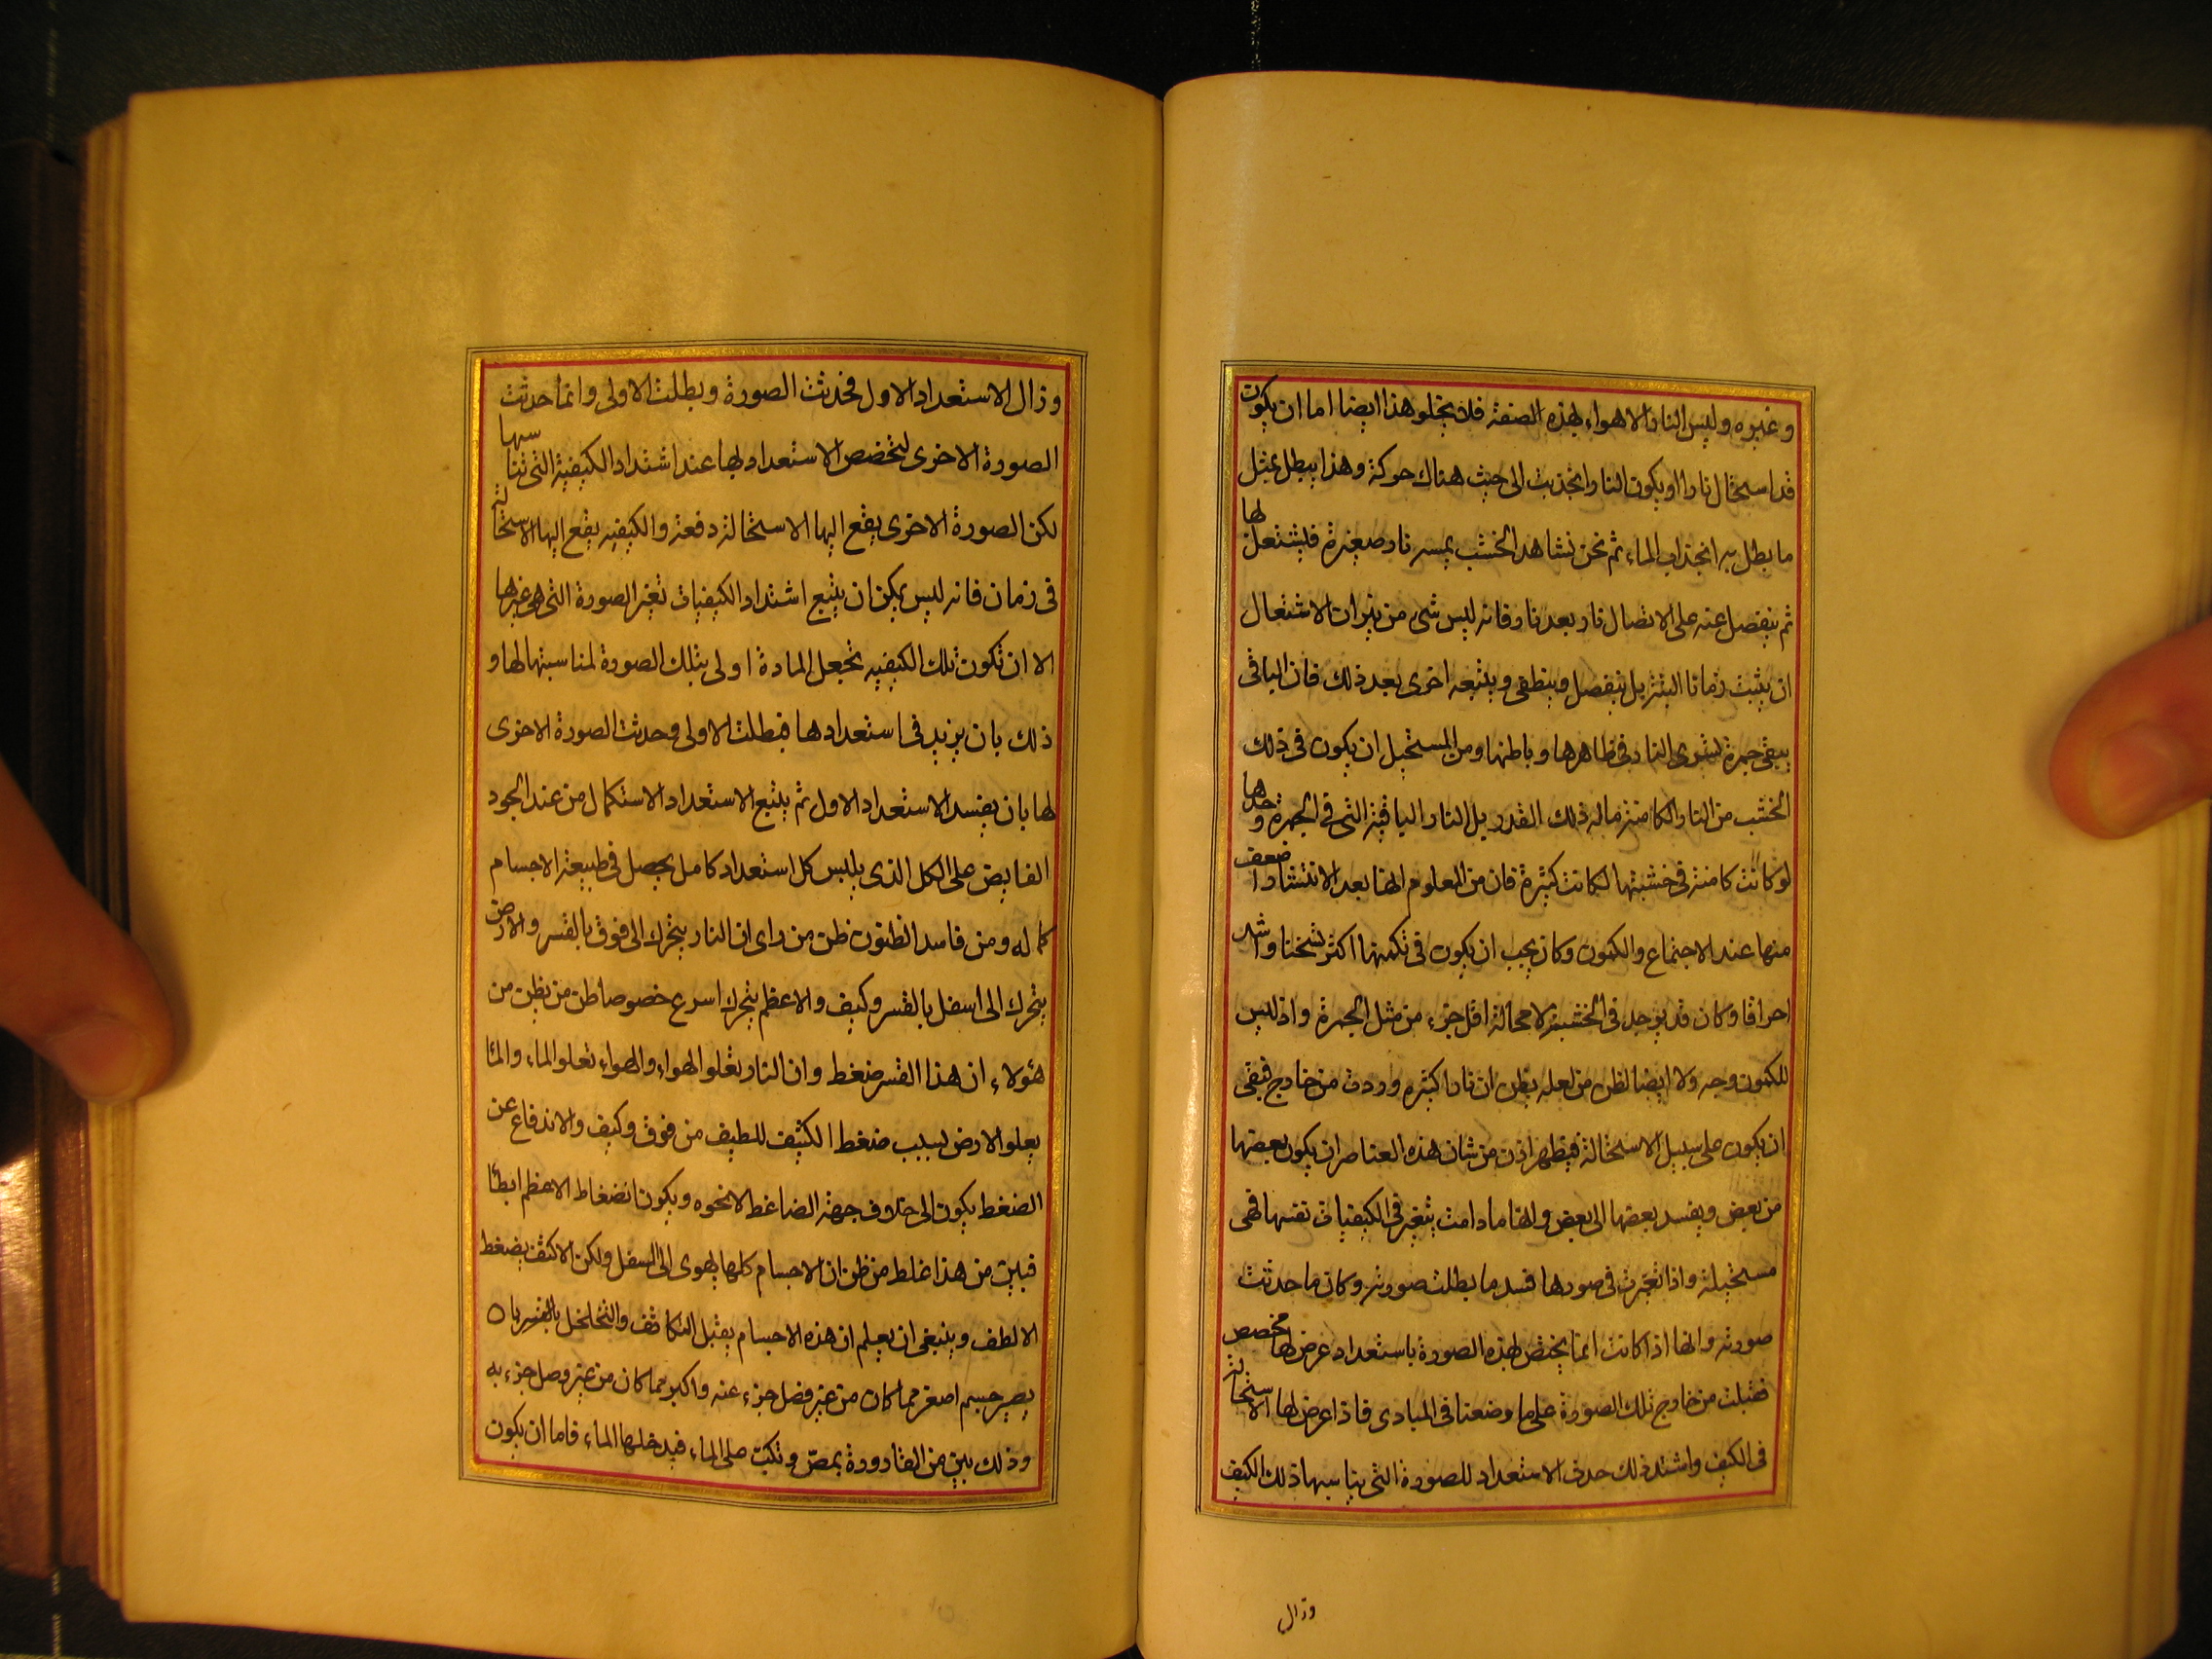 وغيره وليس النار الا هواء بهذه الصفة فلا يخلو هذا ايضا اما ان يكون
قد استحال نارا او يكون النار انجذبت الى حيث هناك حركة وهذا يبطل بمثل
ما بطل به انجذاب الماء ثم نحن نشاهد الخشب يمسه نار صغيرة فيشتعل لها
ثم ينفصل عنه على الاتصال نار بعد نار فانه ليس شئ من نيران الاشتعال
ان يثبت زمانا البتة بل ينفصل وينطفى ويتبعه اخرى بعد ذلك فان الباقى
يبقى جمرة ليشوى النار فى ظاهرها وباطنها ومن المستحيل ان يكون فى ذلك
الخشب من النار الكامنة ماله ذلك القدر بل النار الباقية التى فى الجمرة وحدها
لو كانت كامنة فى خشبتها لكانت كثيرة فان من المعلوم انها بعد الانتشار اضعف
منها عند الاجتماع والكمون وكان يجب ان يكون فى تكمنها اكثر تسخنا واشد
احراقا وكان قد يوجد فى الخشبة لا محالة اقل جزء من مثل الجمرة واذ ليس
للكمون وجه ولا ايضا لظن من لعله يظن ان نارا كثيره وردت من خارج فبقى
ان يكون على سبيل الاستحالة فيظهر اذن من شان هذه العناصر ان يكون بعضها
من بعض ويفسد بعضها الى بعض وانها ما دامت يتغير فى الكيفيات نفسها فهى
مستحيلة واذا تغيرت فى صورها فسد ما بطلت صورته وكان ما حدثت
صورته وانها اذا كانت انما يختص بهذه الصورة باستعداد عرض لها مخصص
فقبلت من خارج تلك الصورة على ما وضعنا فى المبادى فاذا عرض لها الاستحالة
فى الكيف واشتد ذلك حدث الاستعداد للصورة التى يناسبها ذلك الكيف
وزال
وزال الاستعداد الاول فحدثت الصورة وبطلت الاولى وانما حدثت
الصورة الاخرى لتخصص الاستعداد لها عند اشتداد الكيفية التى تناسبها
لكن الصورة الاخرى يقع اليها الاستحالة دفعة والكيفيه يقع اليها الاستحالة
فى زمان فانه ليس يمكن ان يتبع اشتداد الكيفيات تغير الصورة التى هى غيرها
الا ان تكون تلك الكيفيه تجعل المادة اولى بتلك الصورة لمناسبتها لها و
ذلك بان يزيد فى استعدادها فبطلت الاولى وحدثت الصورة الاخرى
لها بان يفسد الاستعداد الاول ثم يتبع الاستعداد الاستكمال من عند الجود
الفايض على الكل الذى يلبس كل استعداد كامل يحصل فى طبيعة الاجسام
كماله ومن فاسد الظنون ظن من راى ان النار يتحرك الى فوق بالقسر والارض
يتحرك الى اسفل بالقسر وكيف والاعظم يتحرك اسرع خصوصا ظن من يظن من
هؤلاء ان هذا القسر ضغط وان النار تعلو الهواء والهواء تعلو الماء والما
يعلو الارض لسبب ضغط الكثيف للطيف من فوق وكيف والاندفاع عن
الضغط يكون الى خلاف جهة الضاغط لا نحوه ويكون انضغاط الاعظم ابطأ
فبين من هذا غلط من ظن ان الاجسام كلها يهوى الى السفل ولكن الاكثف يضغط
الالطف وينبغى ان يعلم ان هذه الاجسام يقبل التكاثف والتخلخل بالقسر بان
يصير جسم اصغر مما كان من غير فصل جزء عنه واكبر مما كان من غير وصل جزء به
وذلك بين من القارورة يمص وتكب على الماء فيدخلها الماء فاما ان يكون